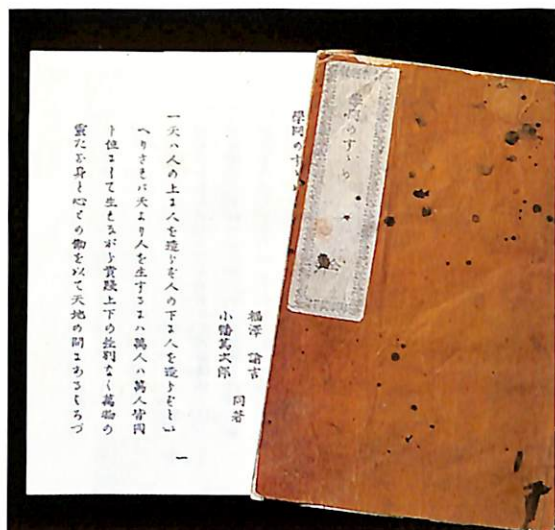 學問のすゝめ
學問のすゝめ
福澤 諭吉
小幡篤次郎 同著
一天ハ人の上に人を造らず人の下に人を造らずとい
へりされバ天より人を生ずるにハ萬人ハ萬人皆同
じ位にして生れながら貴賤上下の差別なく萬物の
靈たる身と心との働を以て天地の間にあるよろづ
一